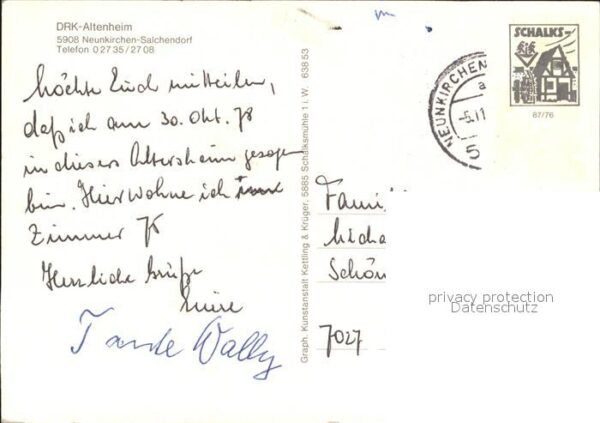 DRK-Altenheim
5908 Neunkirchen-Salchendorf
Telefon 0 27 35 / 27 08
möchte Euch mitteilen,
daß ich am 30. Okt. 78
in dieses Altersheim gezogen
bin. Hier wohne ich
Zimmer 78
Herzliche Grüße
Eure
Tante Wally
Graph. Kunstanstalt Kettling & Krüger, 5885 Schalksmühle i. W. 638 53
SCHALKS-
87/76
NEUNKIRCHEN
a
-5.11
5
Fami
Micha
Schön
7027
privacy protection
Datenschutz